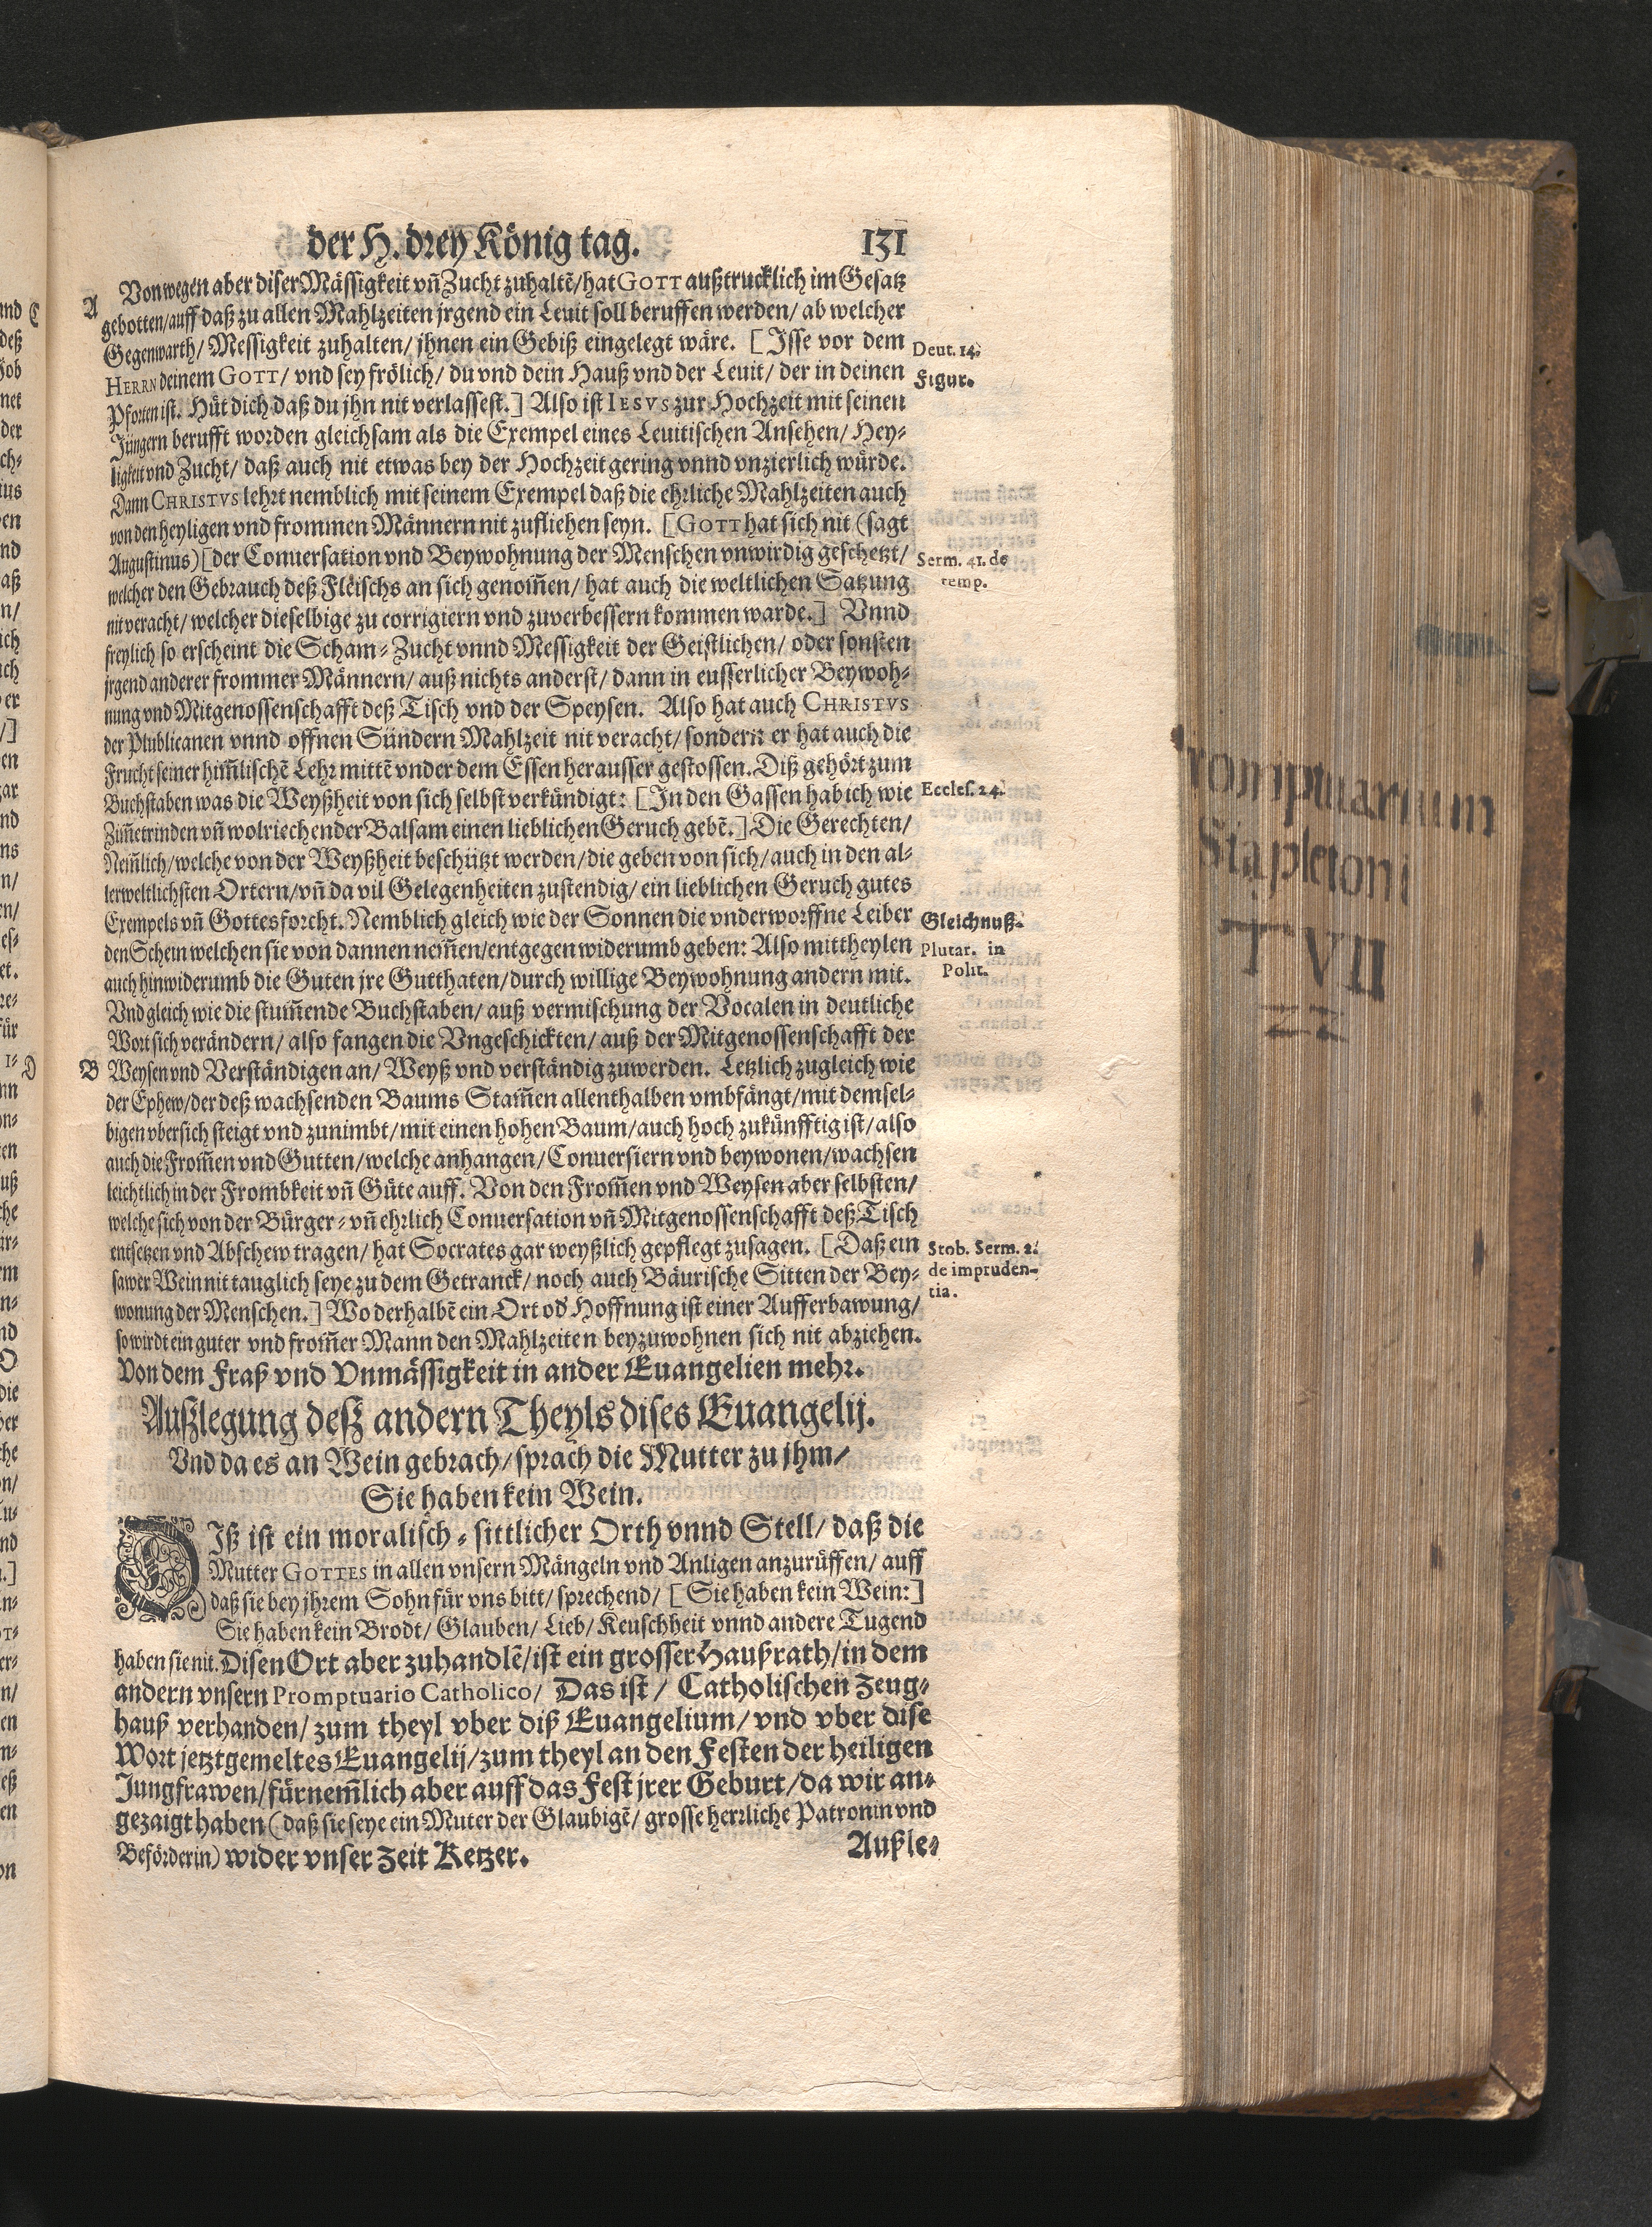 der H. drey König tag. 131
A Von wegen aber diser Mässigkeit vñ Zucht zuhaltẽ/ hat GOTT außtrucklich im Gesatz
gebotten/ auff daß zu allen Mahlzeiten jrgend ein Leuit soll beruffen werden/ ab welcher
Gegenwarth/ Messigkeit zuhalten/ jhnen ein Gebiß eingelegt wäre. [Isse vor dem
Deut. 14.
HERRN deinem GOTT/ vnd sey frölich/ du vnd dein Hauß vnd der Leuit/ der in deinen
Figur.
Pforten ist. Hüt dich daß du jhn nit verlassest.] Also ist IESVS zur Hochzeit mit seinen
Jüngern berufft worden gleichsam als die Exempel eines Leuitischen Ansehen/ Hey-
ligkeit vnd Zucht/ daß auch nit etwas bey der Hochzeit gering vnnd vnzierlich würde.
Dann CHRISTVS lehrt nemblich mit seinem Exempel daß die ehrliche Mahlzeiten auch
von den heyligen vnd frommen Männern nit zufliehen seyn. [GOTT hat sich nit (sagt
Augustinus) [der Conuersation vnd Beywohnung der Menschen vnwirdig geschetzt/
Serm. 41. de
temp.
welcher den Gebrauch deß Fleischs an sich genom̃en/ hat auch die weltlichen Satzung
nit veracht/ welcher dieselbige zu corrigiern vnd zuverbessern kommen warde.] Vnnd
freylich so erscheint die Scham- Zucht vnnd Messigkeit der Geistlichen/ oder sonsten
jrgend anderer frommer Männern/ auß nichts anderst/ dann in eusserlicher Beywoh-
nung vnd Mitgenossenschafft deß Tisch vnd der Speysen. Also hat auch CHRISTVS
der Plublicanen vnnd offnen Sündern Mahlzeit nit veracht/ sondern er hat auch die
Frucht seiner him̃lischẽ Lehr mittẽ vnder dem Essen herausser gestossen. Diß gehört zum
Buchstaben was die Weyßheit von sich selbst verkündigt: [In den Gassen hab ich wie
Eccles. 24.
Zim̃etrinden vñ wolriechender Balsam einen lieblichen Geruch gebẽ.] Die Gerechten/
Nem̃lich/ welche von der Weyßheit beschützt werden/ die geben von sich/ auch in den al-
lerweltlichsten Ortern/ vñ da vil Gelegenheiten zustendig/ ein lieblichen Geruch gutes
Exempels vñ Gottesforcht. Nemblich gleich wie der Sonnen die vnderworffne Leiber
Gleichnuß.
den Schein welchen sie von dannen nem̃en/ entgegen widerumb geben: Also mittheylen
Plutar. in
Polit.
auch hinwiderumb die Guten jre Gutthaten/ durch willige Beywohnung andern mit.
Vnd gleich wie die stum̃ende Buchstaben/ auß vermischung der Vocalen in deutliche
Wort sich verändern/ also fangen die Vngeschickten/ auß der Mitgenossenschafft der
B Weysen vnd Verständigen an/ Weyß vnd verständig zuwerden. Letzlich zugleich wie
der Ephew/ der deß wachsenden Baums Stam̃en allenthalben vmbfängt/ mit demsel-
bigen vbersich steigt vnd zunimbt/ mit einen hohen Baum/ auch hoch zukünfftig ist/ also
auch die From̃en vnd Gutten/ welche anhangen/ Conuersiern vnd beywonen/ wachsen
leichtlich in der Frombkeit vñ Güte auff. Von den From̃en vnd Weysen aber selbsten/
welche sich von der Bürger- vñ ehrlich Conuersation vñ Mitgenossenschafft deß Tisch
entsetzen vnd Abschew tragen/ hat Socrates gar weyßlich gepflegt zusagen. [Daß ein
Stob. Serm. 2.
de impruden-
tia.
sawer Wein nit tauglich seye zu dem Getranck/ noch auch Bäurische Sitten der Bey-
wonung der Menschen.] Wo derhalbẽ ein Ort od' Hoffnung ist einer Aufferbawung/
so wirdt ein guter vnd from̃er Mann den Mahlzeiten beyzuwohnen sich nit abziehen.
Von dem Fraß vnd Vnmässigkeit in ander Euangelien mehr.
Außlegung deß andern Theyls dises Euangelij.
Vnd da es an Wein gebrach/ sprach die Mutter zu jhm/
Sie haben kein Wein.
DIß ist ein moralisch- sittlicher Orth vnnd Stell/ daß die
Mutter GOTTES in allen vnsern Mängeln vnd Anligen anzurüffen/ auff
daß sie bey jhrem Sohn für vns bitt/ sprechend/ [Sie haben kein Wein:]
Sie haben kein Brodt/ Glauben/ Lieb/ Keuschheit vnnd andere Tugend
haben sie nit. Disen Ort aber zuhandlẽ/ ist ein grosser Haußrath/ in dem
andern vnsern Promptuario Catholico/ Das ist/ Catholischen Zeug-
hauß verhanden/ zum theyl vber diß Euangelium/ vnd vber dise
Wort jetztgemeltes Euangelij/ zum theyl an den Festen der heiligen
Jungfrawen/ fürnem̃lich aber auff das Fest jrer Geburt/ da wir an-
gezaigt haben (daß sie seye ein Muter der Glaubigẽ/ grosse herrliche Patronin vnd
Beförderin) wider vnser Zeit Ketzer.
Außle-
Promptuarium
Stapletoni
T VII